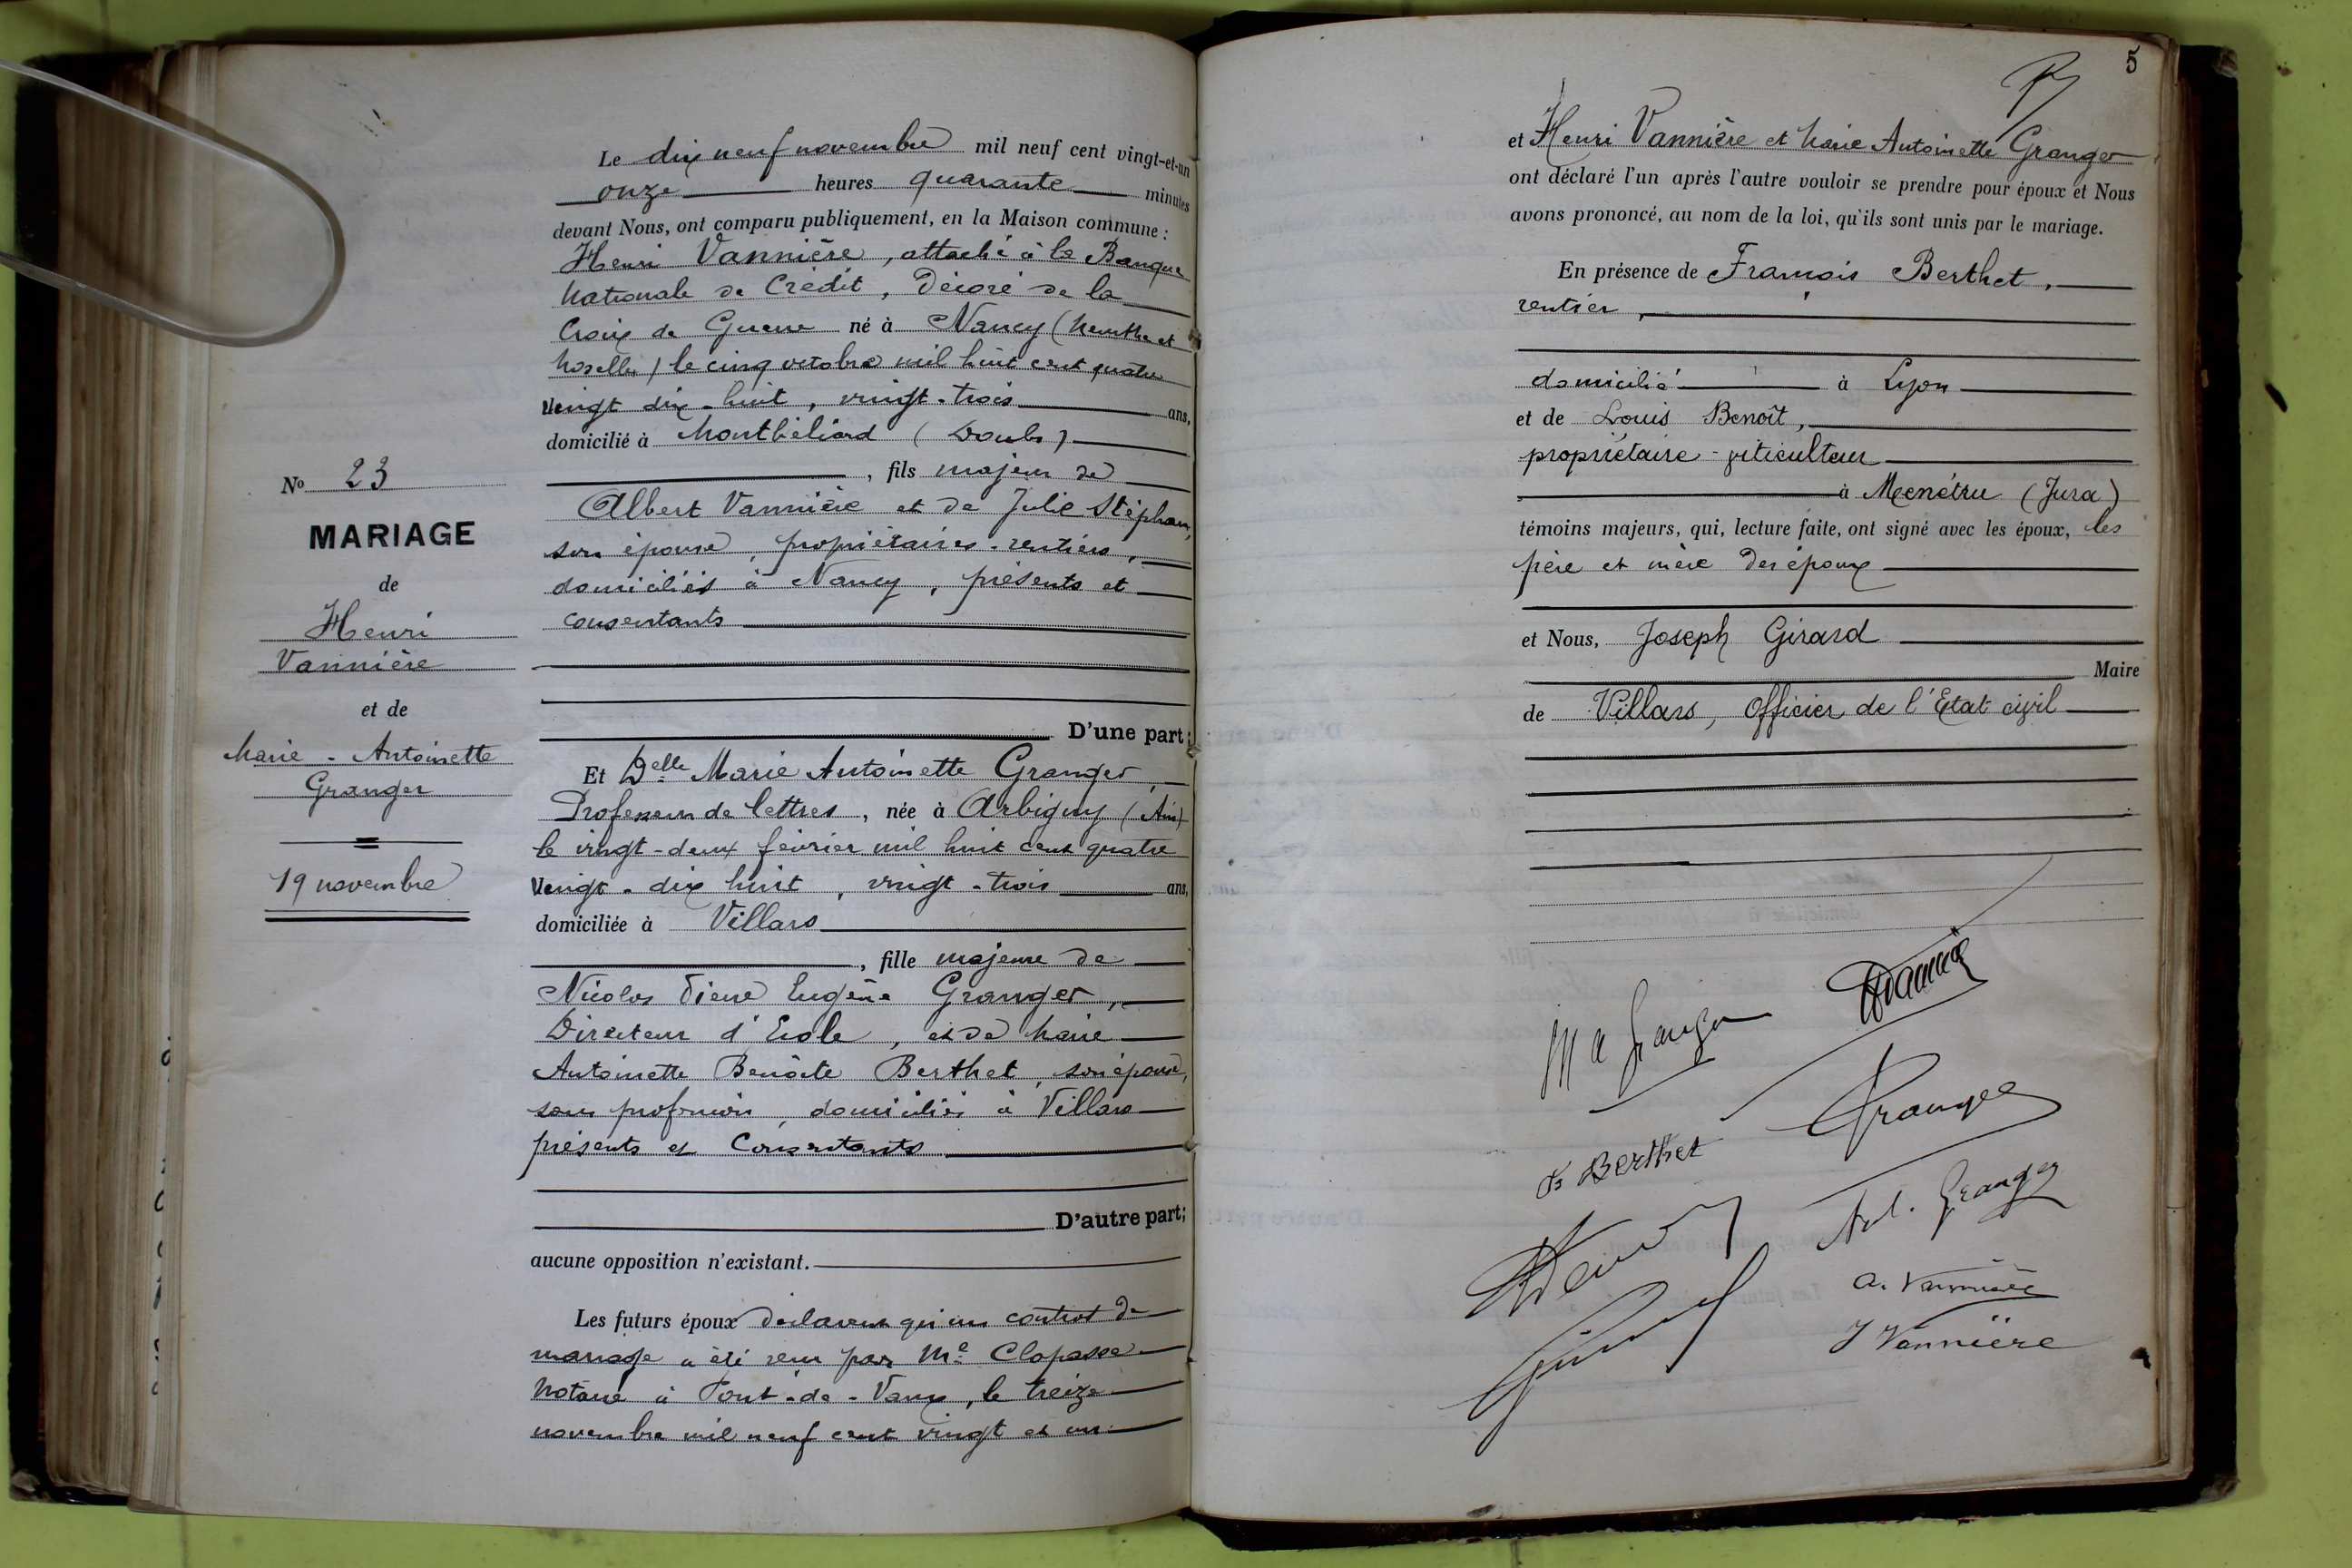 Le dix neuf novembre mil neuf cent vingt-et-un
onze heures quarante minutes
devant Nous, ont comparu publiquement, en la Maison commune :
Henri Vannière, attaché à la Banque
Nationale de Crédit, Décoré de la
Croix de Guerre né à Nancy (Meurthe et
Moselle) le cinq octobre mil huit cent quatre
vingt dix-huit, vingt-trois ans,
domicilié à Montbéliard (Doubs)
, fils majeur de
Albert Vannière et de Julie Stéphan,
son épouse, propriétaires-rentiers,
domiciliés à Nancy, présents et
consentants
D'une part;
Nº 23
MARIAGE
de
Henri
Vannière
et de
Marie-Antoinette
Granger
19 novembre
Et Delle Marie Antoinette Granger
Professeur de lettres, née à Arbigny (Ain)
le vingt-deux février mil huit cent quatre
vingt-dix huit, vingt-trois ans,
domiciliée à Villars
, fille majeure de
Nicolas Pierre Eugène Granger,
Directeur d'Ecole, et de Marie
Antoinette Benoîte Berthet, son épouse,
sans profession, domiciliés à Villars
présents et Consentants
D'autre part;
aucune opposition n'existant.
Les futurs époux déclarent qu'un contrat de
mariage a été reçu par Me Clopasse
Notaire à Pont-de-Vaux, le treize
novembre mil neuf cent vingt et un
5
et Henri Vannière et Marie Antoinette Granger
ont déclaré l'un après l'autre vouloir se prendre pour époux et Nous
avons prononcé, au nom de la loi, qu'ils sont unis par le mariage.
En présence de François Berthet,
rentier,
domicilié à Lyon
et de Louis Benoît,
propriétaire-viticulteur
à Menétru (Jura)
témoins majeurs, qui, lecture faite, ont signé avec les époux, les
père et mère des époux
et Nous, Joseph Girard
Maire
de Villars, Officier de l'Etat civil
M A Granger
F. Berthet
Granger
Ant. Granger
A. Vannière
J Vannière